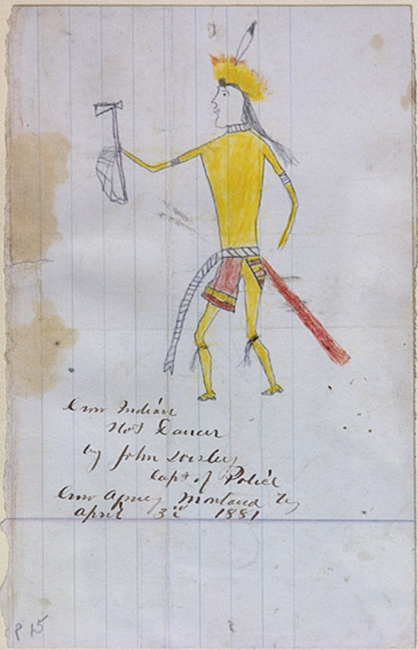 Crow Indian
Hot Dancer
by John
Capt of Police
Crow Agency Montana Ty
April 3d 1881
P 15